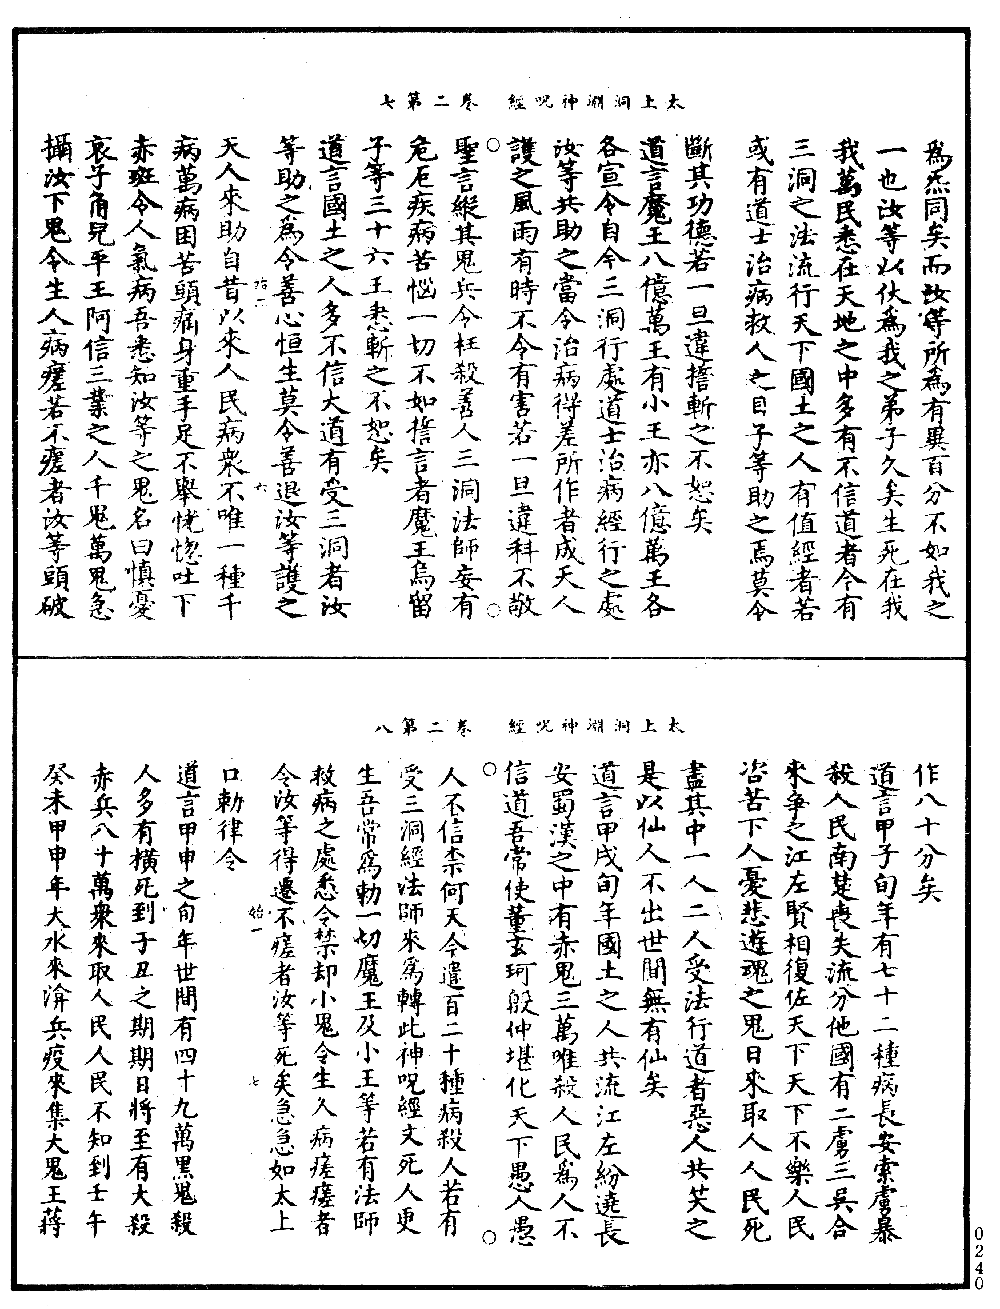 太上洞淵神呪經 卷二第七
爲炁同矣而汝等所爲有異百分不如我之
一也汝等以伏爲我之弟子久矣生死在我
我萬民悉在天地之中多有不信道者令有
三洞之法流行天下國土之人有值經者若
或有道士治病救人之日子等助之焉莫令
斷其功德若一旦違擔斬之不恕矣
道言魔王八億萬王有小王亦八億萬王各
各宣令自今三洞行處道士治病經行之處
汝等共助之當令治病得差所作者成天人
護之風雨有時不令有害若一旦違科不敬
聖言縱其鬼兵令枉殺善人三洞法師妄有
危厄疾病苦惱一切不如擔言者魔王烏留
子等三十六王悉斬之不恕矣
道言國土之人多不信大道有受三洞者汝
等助之爲令善心恒生莫令善退汝等護之
始一 六
天人來助自昔以來人民病衆不唯一種千
病萬病困苦頭痛身重手足不舉恍惚吐下
赤斑令人氣病吾悉知汝等之鬼名曰慎憂
哀子角兒平王阿信三業之人千鬼萬鬼急
攝汝下鬼令生人病瘥若不瘥者汝等頭破
太上洞淵神呪經 卷二第八
作八十分矣
道言甲子旬年有七十二種病長安索虜暴
殺人民南楚喪失流分他國有二虜三吳合
來爭之江左賢相復佐天下天下不樂人民
咨苦下人憂悲遊魂之鬼日來取人人民死
盡其中一人二人受法行道者惡人共笑之
是以仙人不出世間無有仙矣
道言甲戌旬年國土之人共流江左紛遶長
安蜀漢之中有赤鬼三萬唯殺人民爲人不
信道吾常使董玄珂殷仲堪化天下愚人愚
人不信柰何天今遣百二十種病殺人若有
受三洞經法師來爲轉此神呪經文死人更
生吾常爲勅一切魔王及小王等若有法師
救病之處悉令禁却小鬼令生人病瘥瘥者
令汝等得遷不瘥者汝等死矣急急如太上
始一 七
口勅律令
道言甲申之旬年世間有四十九萬黑鬼殺
人多有橫死到子丑之期期日將至有大殺
赤兵八十萬衆來取人民人民不知到壬午
癸未甲申年大水來渰兵疫來集大鬼王蔣
0240